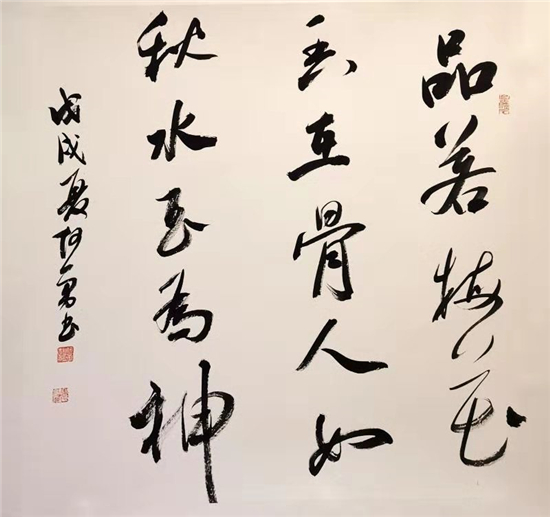 品若梅花
香在骨人如
秋水玉為神
戊戌夏 書